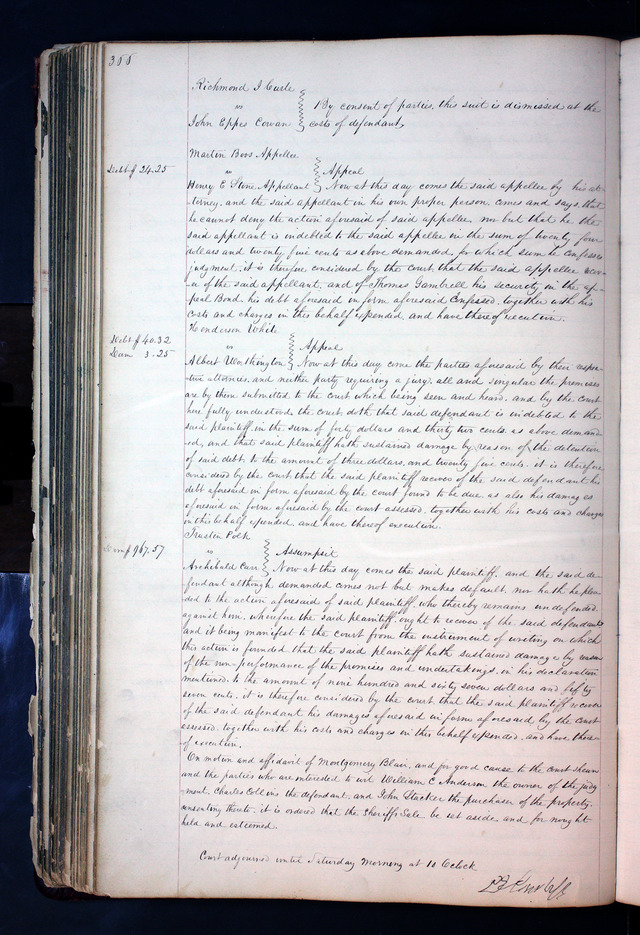 Richmond J Curle
vs
By consent of parties, this suit is dismissed at the
John Eppes Cowan costs of defendant,
Martin Boos Appellee
Debt $ 24.25 vs Appeal
Henry E Stone Appellant Now at this day comes the said appellee by his at-
torney, and the said appellant in his own proper person, comes and says, that
he cannot deny the action aforesaid of said appellee, nor but that he the
said appellant is indebted to the said appellee in the sum of twenty four
dollars and twenty five cents as above demanded, for which sum he confesses
judgment, it is therefore considered by the court, that the said appellee recov-
er of the said appellant, and of Thomas Gambrell his security in the ap-
peal Bond, his debt aforesaid in form aforesaid Confessed, together with his
costs and charges in this behalf expended, and have thereof execution.
Henderson White
Debt $ 40.32
Dam 3.25 vs Appeal
Albert Worthington Now at this day come the parties aforesaid by their respec-
tive attornies, and neither party requiring a jury, all and singular the premises
are by them submitted to the court which being seen and heard, and by the court
here fully understood, the court, doth that said defendant is indebted to the
said plaintiff, in the sum of forty dollars and thirty two cents, as above demand-
ed, and that said plaintiff hath sustained damage by reason of the detention
of said debt to the amount of three dollars, and twenty five cents, it is therefore
considered by the court that the said plaintiff recover of the said defendant his
debt aforesaid in form aforesaid by the court found to be due, as also his damages
aforesaid in form aforesaid by the court assessed, together with his costs and charges
in this behalf expended, and have thereof execution.
Trusten Polk
Dam $ 967.57 vs Assumpsit
Archibald Carr Now at this day comes the said plaintiff, and the said de-
fendant although demanded comes not but makes default, nor hath he plea-
ded to the action aforesaid of said plaintiff, who thereby remains undefended
against him, wherefore the said plaintiff, ought to recover of the said defendant
and it being manifest to the court from the instrument of writing on which
this action is founded, that the said plaintiff hath sustained damage by reason
of the non-performance of the promises and undertakings, in his declaration
mentioned, to the amount of nine hundred and sixty seven dollars and fifty
seven cents, it is therefore considered by the court, that the said plaintiff recover
of the said defendant his damages aforesaid in form aforesaid by the court
assessed, together with his costs and charges in this behalf expended, and have there-
of execution.
On motion and affidavit of Montgomery Blair, and for good cause to the court shewn
and the parties who are interested to wit William C Anderson the owner of the judg
ment, Charles Collins the defendant, and John Stacker the purchaser of the property,
consenting thereto, it is ordered that the Sheriffs Sale be set aside and for nought
held and esteemed.
Court adjourned until Saturday morning at 10 Oclock